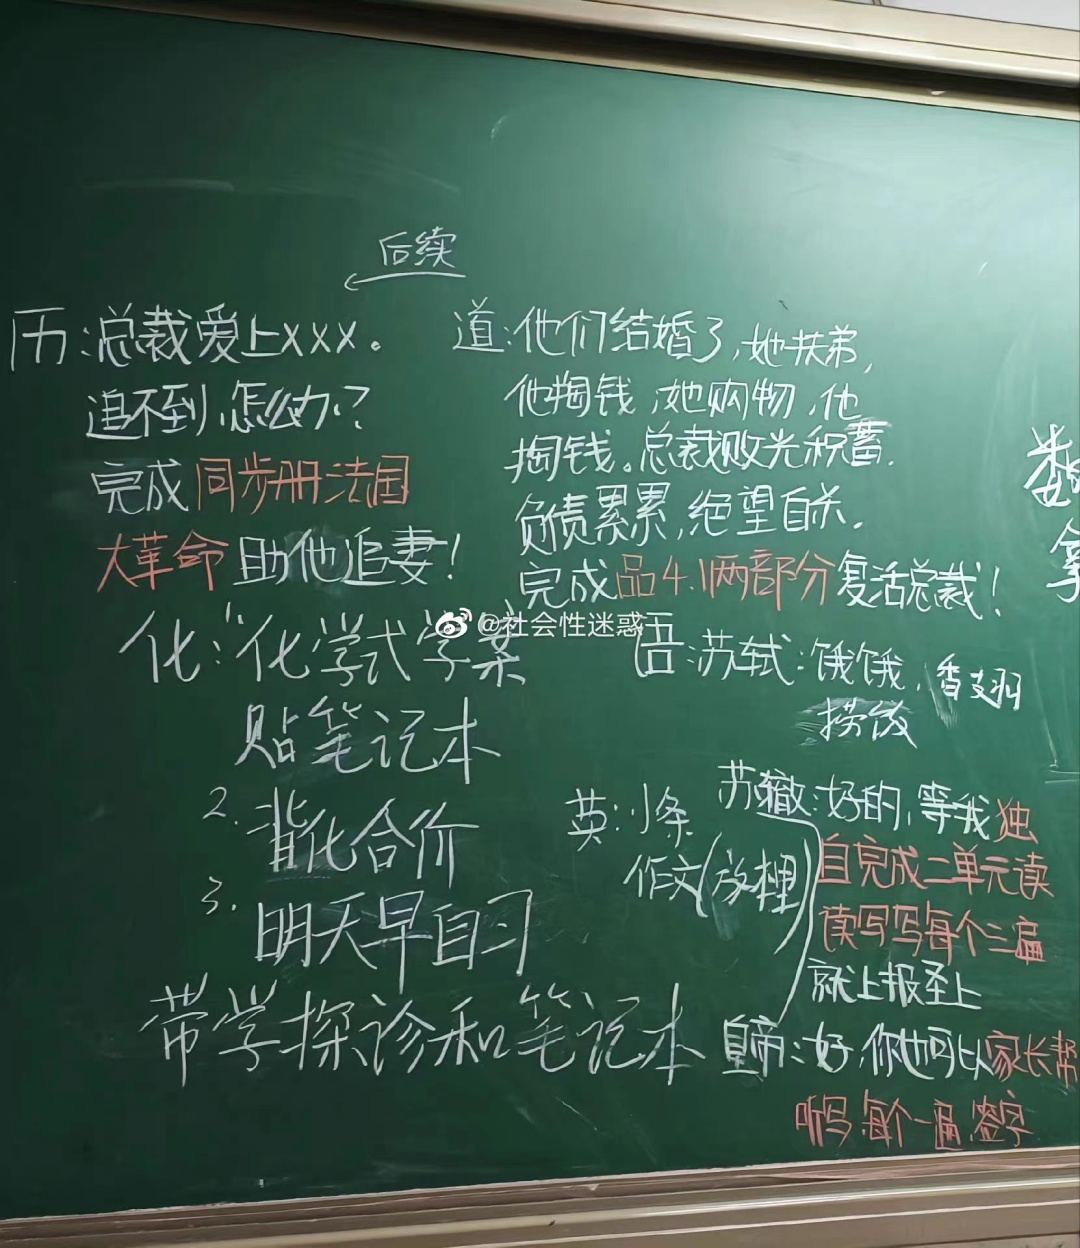 后续
历:总裁爱上xxx。
追不到,怎么办?
完成同步册法国
大革命助他追妻!
道:他们结婚了,她扶弟,
他掏钱,她购物,他
掏钱。总裁败光积蓄.
负债累累,绝望自杀.
完成品4.1两部分复活总裁!
@社会性迷惑
化:1."化学式学案
贴笔记本
2.背化合价
3.明天早自习
带学探诊和笔记本
语:苏轼:饿饿,香支羽
捞饭
英:小条
作文(放押)
苏辙:好的,等我独
自完成二单元读
读写写每个三遍
就上报圣上
皇帝:好,你也可以家长帮
听写,每个一遍,签字
数
拿